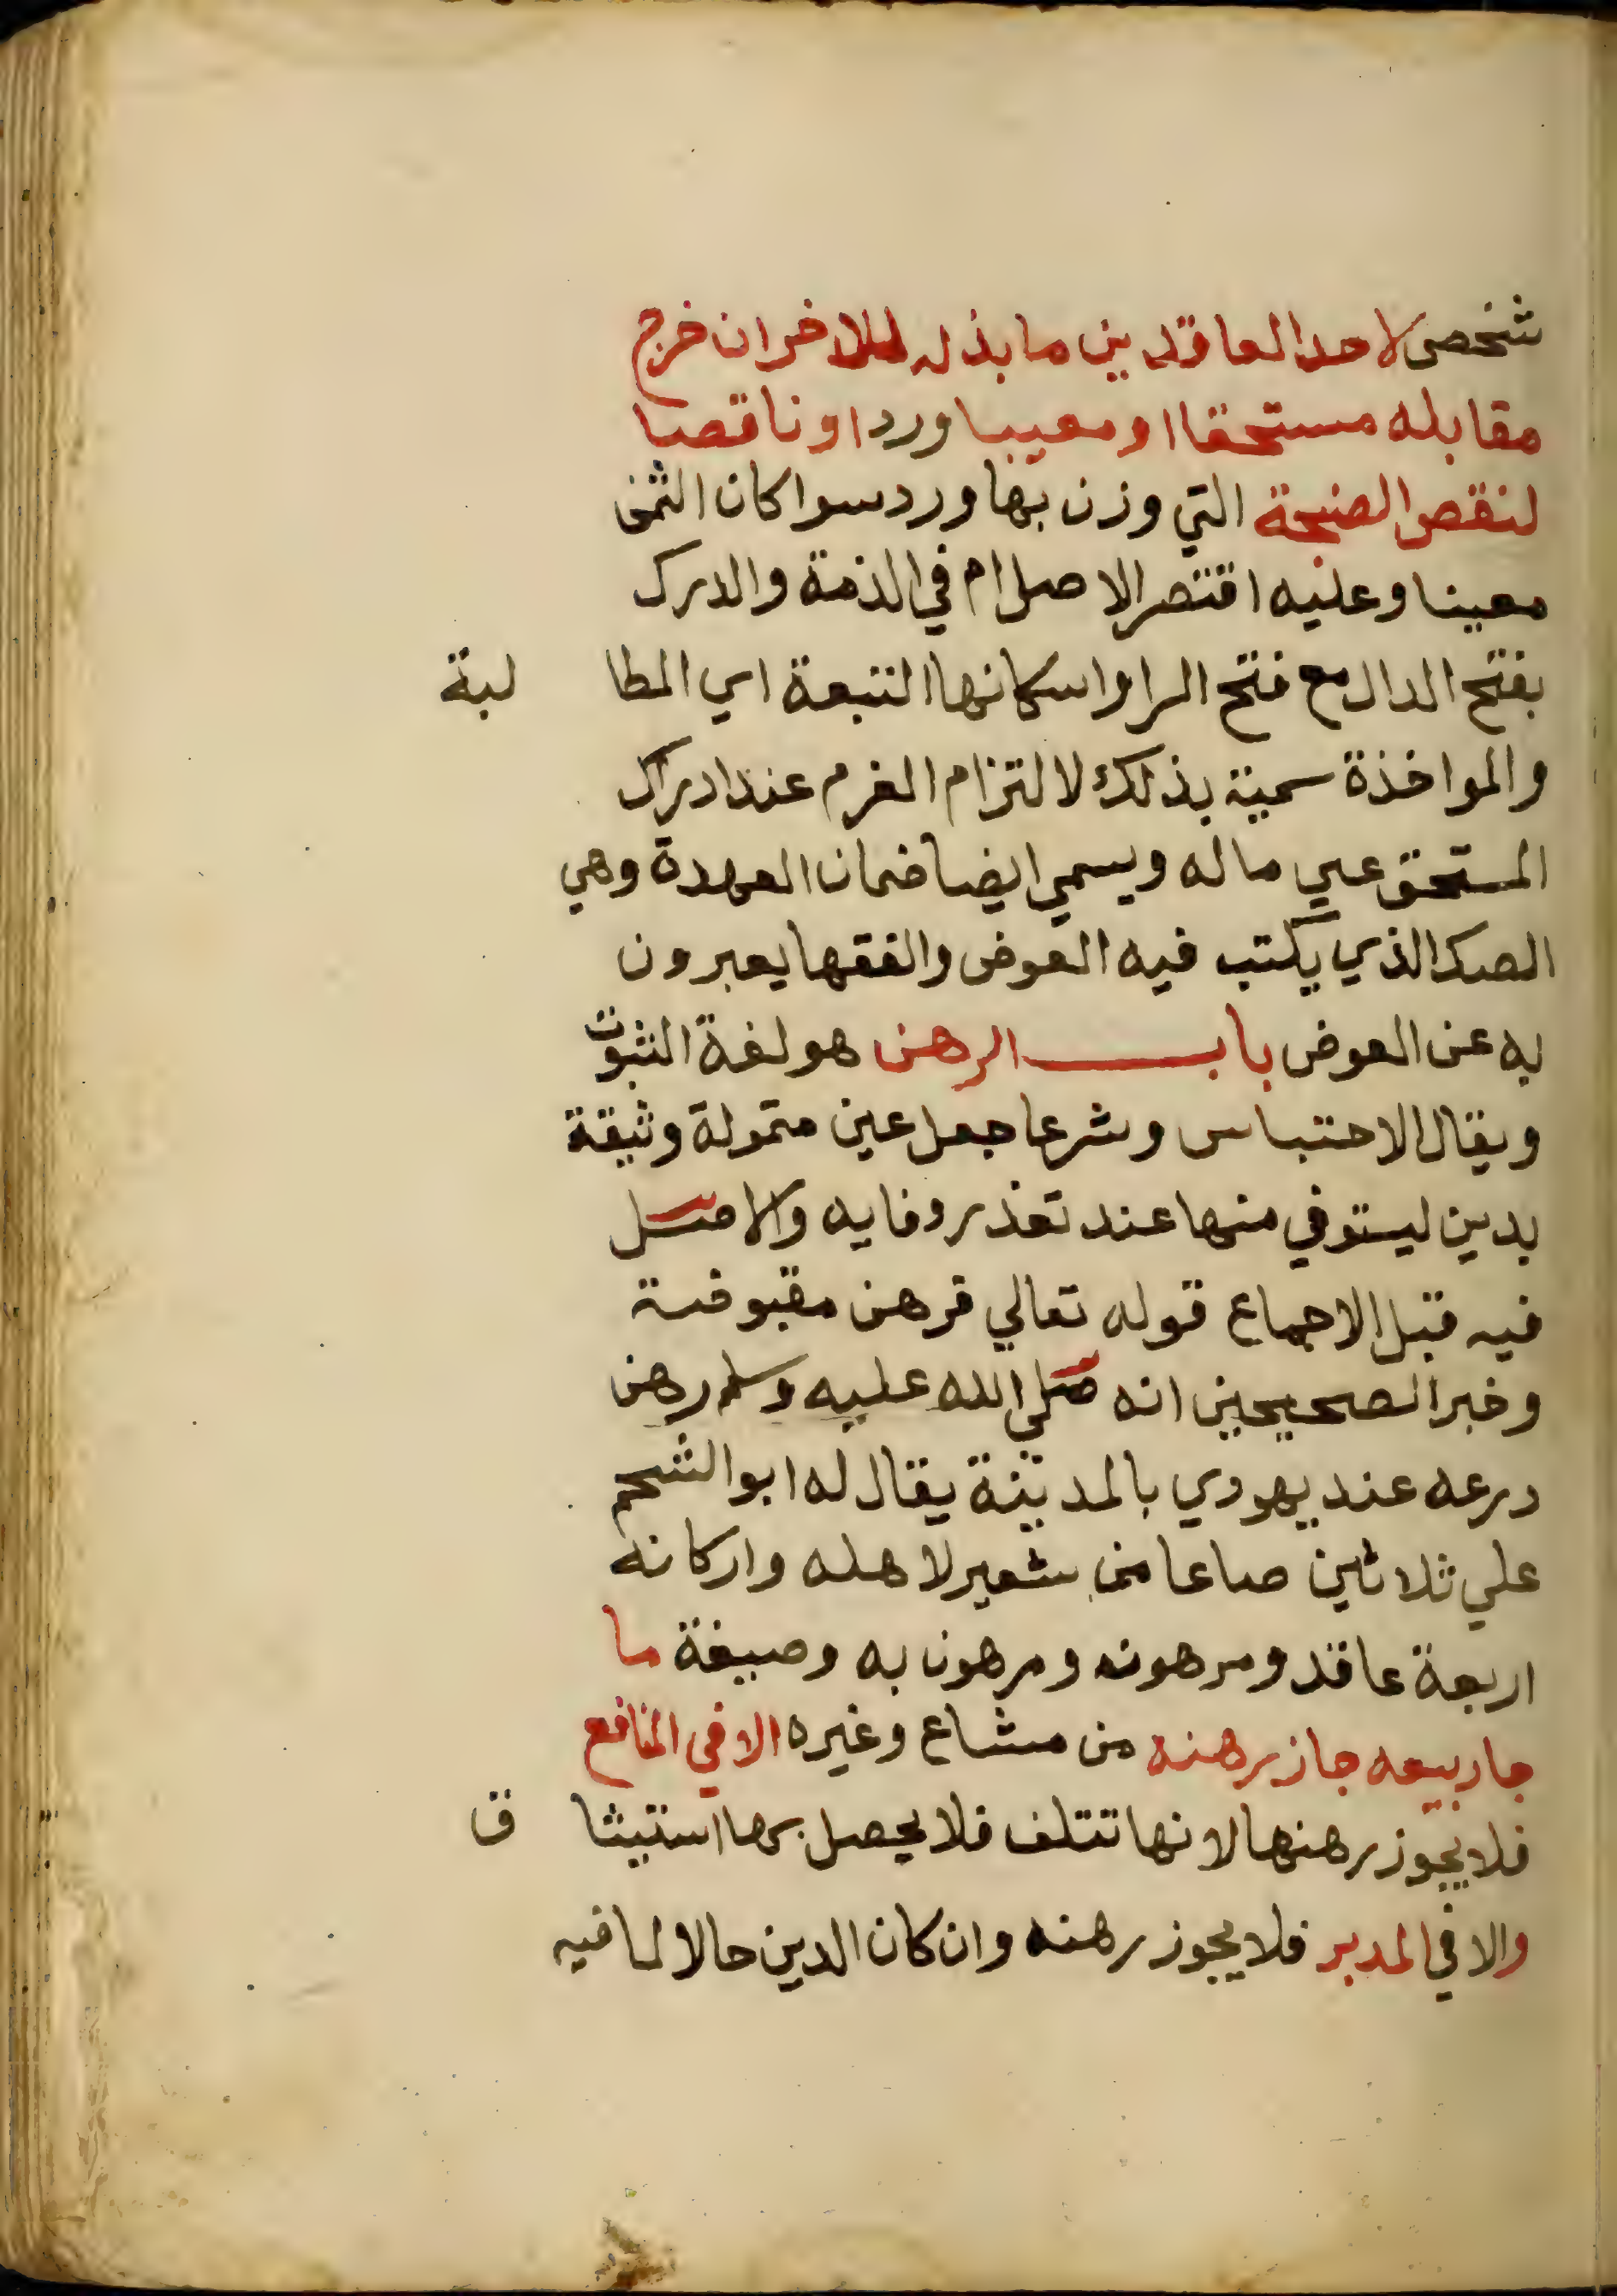 شخص لاحد العاقدين ما بذله للاخر ان خرج
مقابله مستحقا او معيبا ورد او ناقصا
لنقص الصنجة التي وزن بها ورد سوا كان الثمن
معينا وعليه اقتصر الاصل ام في الذمة والدرك
بفتح الدال مع فتح الرا واسكانها التبعة اي المطا لبة
والمواخذة سمية بذلك لالتزام الغرم عند ادراك
المستحق عين ماله ويسمي ايضا ضمان العهدة وهي
الصك الذي يكتب فيه العوض والفقها يعبرون
به عن العوض باب الرهن هو لغة الثبوت
ويقال الاحتباس وشرعا جعل عين متمولة وثيقة
بدين ليستوفي منها عند تعذر وفايه والاصل
فيه قبل الاجماع قوله تعالي فرهن مقبوضة
وخبر الصحيحين انه صلي الله عليه وسلم رهن
درعه عند يهودي بالمدينة يقال له ابو الشحم
علي ثلاثين صاعا من شعير لاهله واركانه
اربعة عاقد ومرهونه ومرهون به وصيغة ما
جاز بيعه جاز رهنه من مشاع وغيره الا في المنافع
فلا يجوز رهنها لانها تتلف فلا يحصل بها استيثا ق
والا في المدبر فلا يجوز رهنه وان كان الدين حالا لما فيه